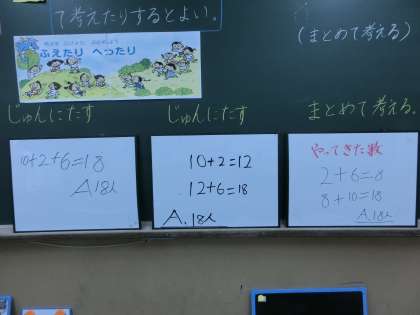 て考えたりするとよい。
(まとめて考える)
ふえたり へったり
じゅんにたす
じゅんにたす
まとめて考える。
10+2+6=18
A 18人
10+2=12
12+6=18
A. 18人
やってきた数
2+6=8
8+10=18
A. 18人